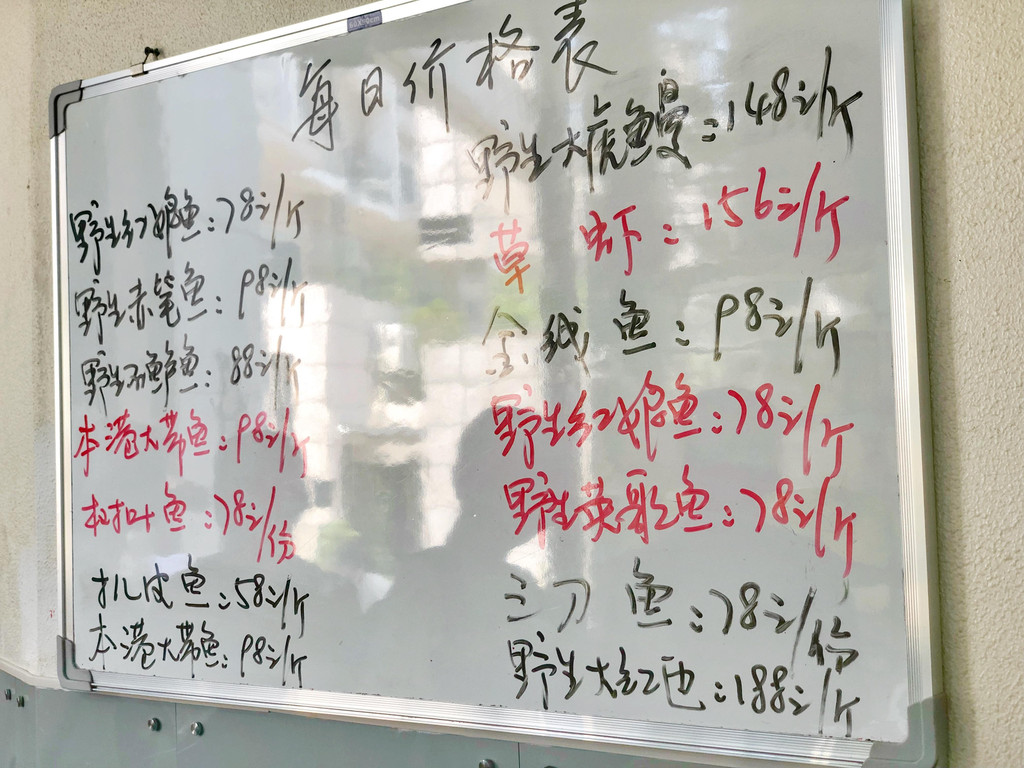 每日价格表
野生红娘鱼:78元/斤
野生赤笔鱼:98元/斤
野生石鲈鱼:88元/斤
本港大带鱼:98元/斤
鱼:78元/份
扒皮鱼:58元/斤
本港大带鱼:98元/斤
野生大虎鳗:148元/斤
草虾:156元/斤
金线鱼:98元/斤
野生红娘鱼:78元/斤
野生英歌鱼:78元/斤
三刀鱼:78元/份
野生大红:188元/斤